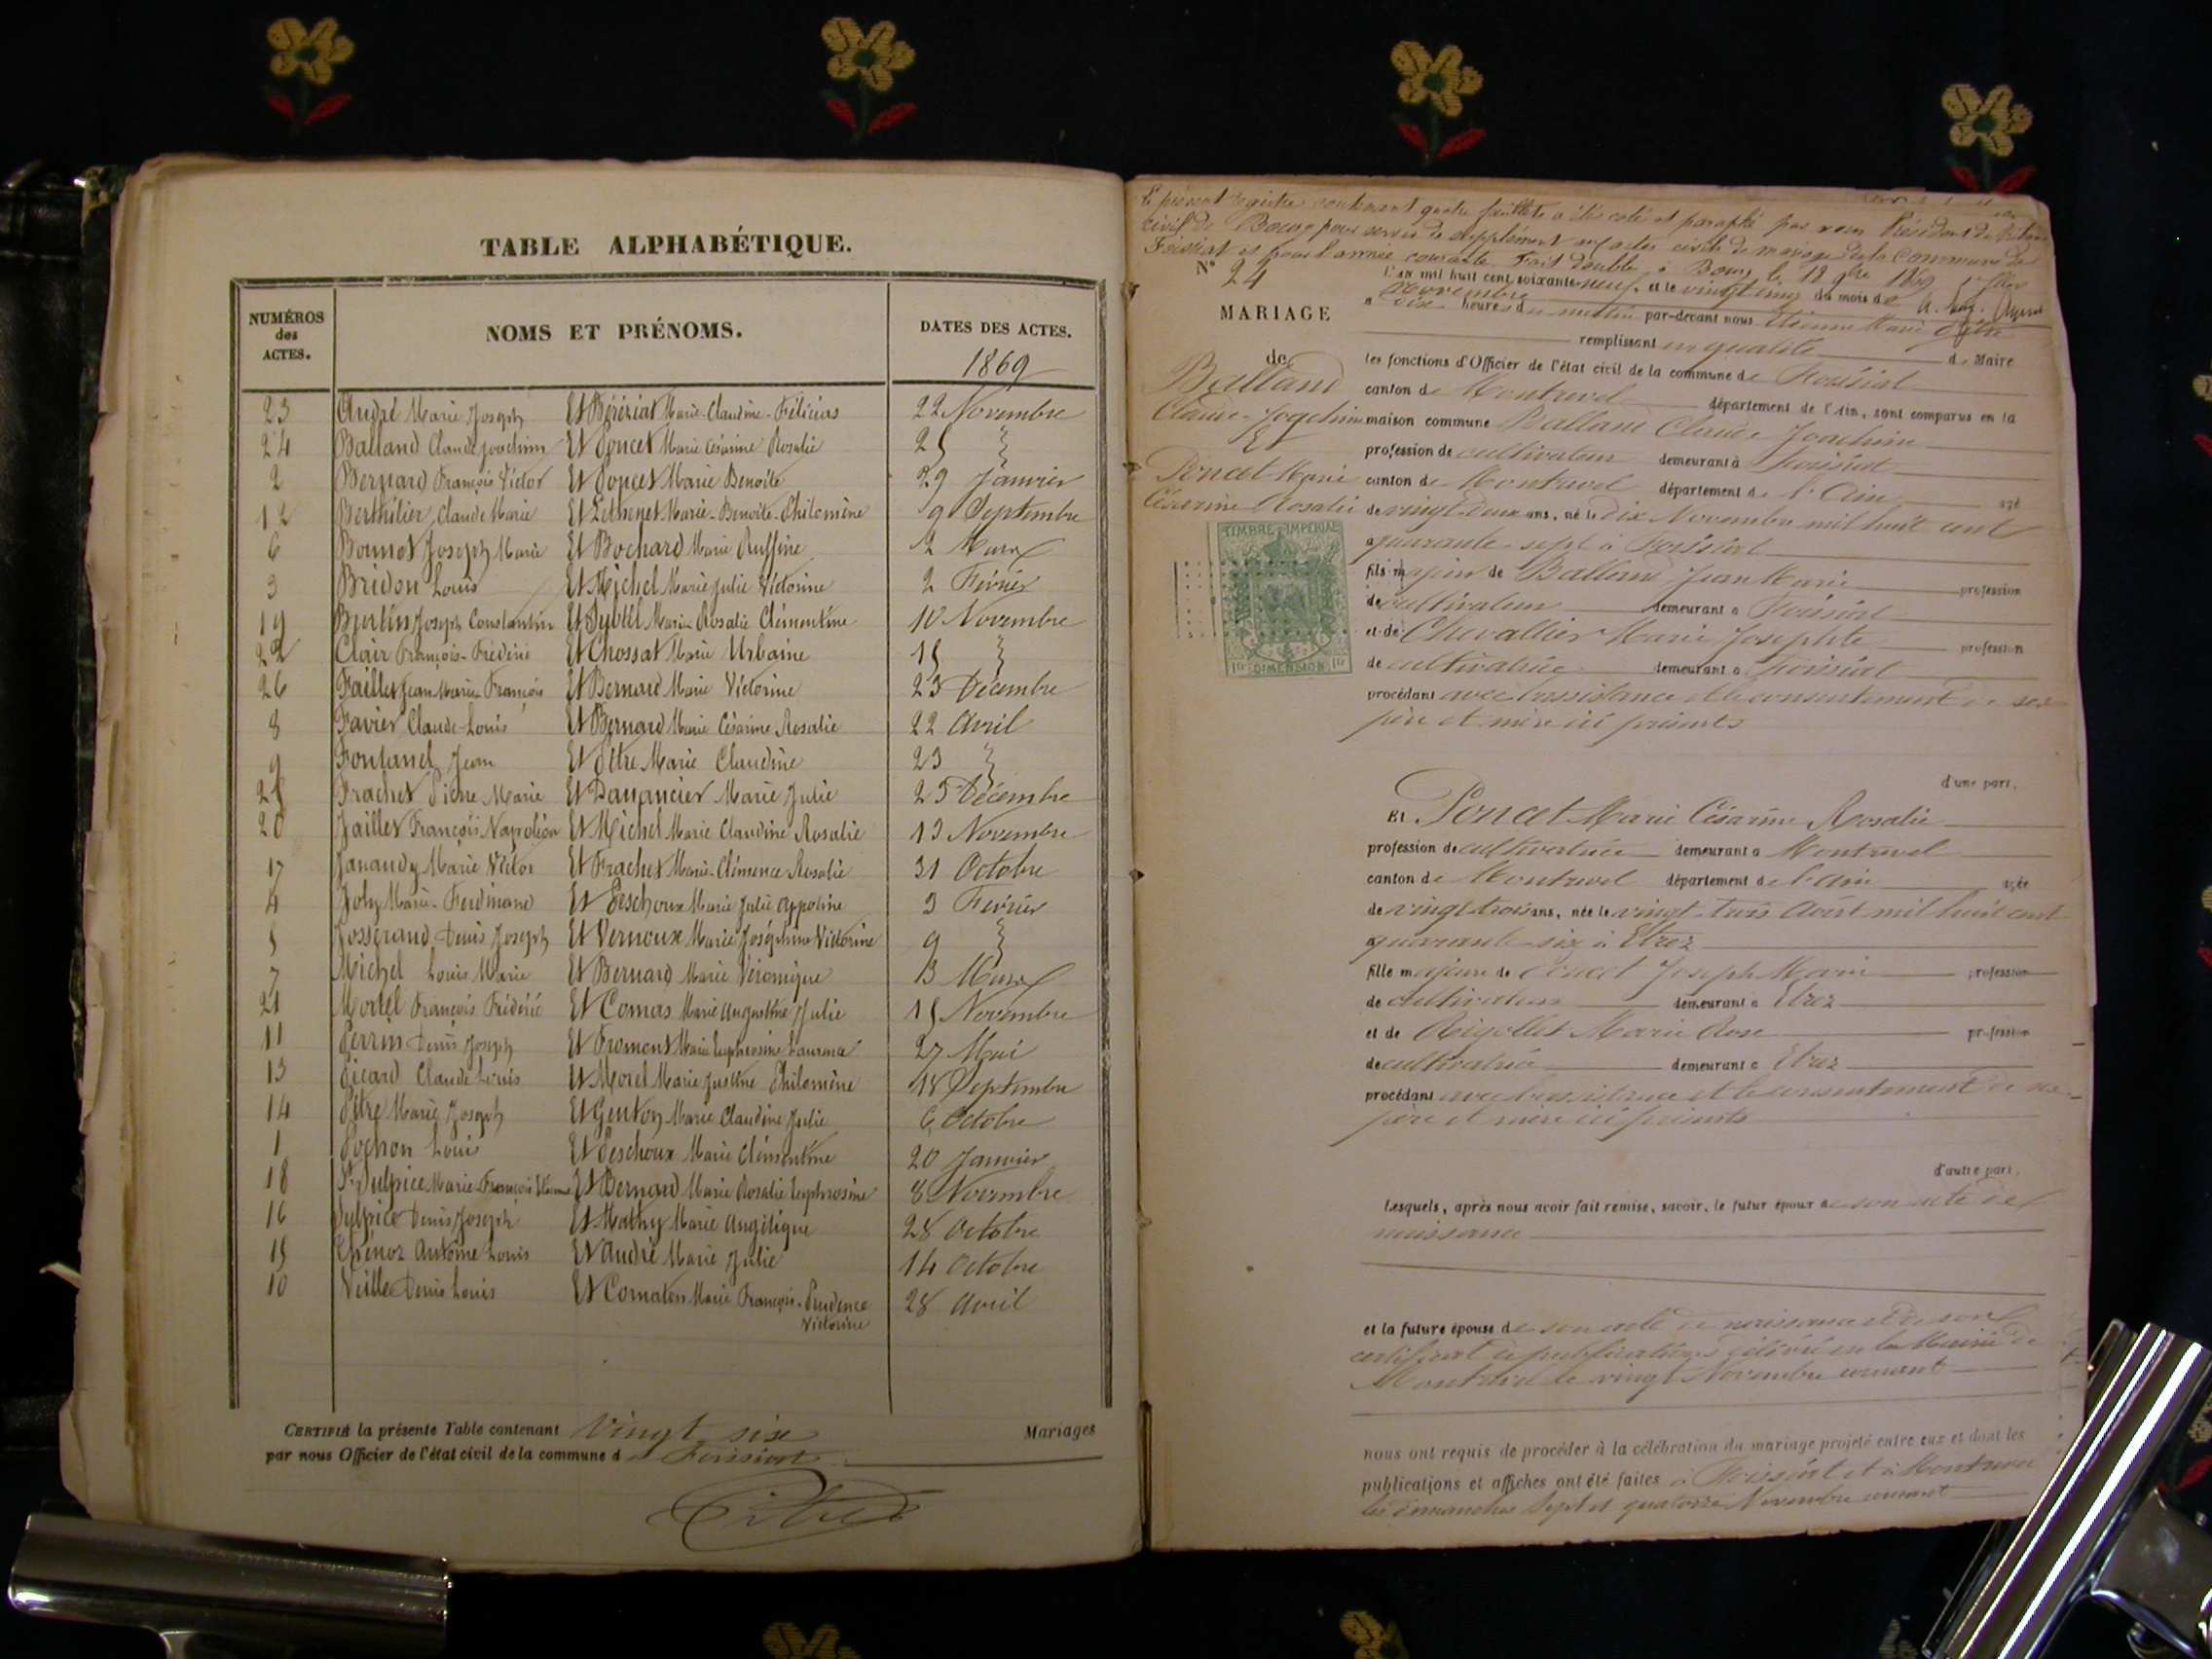 TABLE ALPHABÉTIQUE.
NUMÉROS des ACTES.
NOMS ET PRÉNOMS.
DATES DES ACTES.
1869
23 André Marie Joseph Et Béréziat Marie-Claudine-Félicias 22 Novembre
24 Balland Claude Joachim Et Poncet Marie Césarine Rosalie 25 "
2 Bernard François Victor Et Poncet Marie Benoîte 29 Janvier
12 Berthilier Claude Marie Et Marie-Benoite-Philomène 9 Septembre
6 Bonnet Joseph Marie Et Bochard Marie Ruffine 2 Mars
3 Bridon Louis Et Michel Marie Julie Victorine 2 Février
19 Joseph Constantin Et Marie Rosalie Clémentine 10 Novembre
22 Clair François-Frédéric Et Chossat Marie Urbaine 15 "
26 Faillet Jean Marie François Et Bernard Marie Victorine 23 Décembre
8 Favier Claude-Louis Et Bernard Marie Césarine Rosalie 22 Avril
9 Fontanel Jean Et Pitre Marie Claudine 23 "
25 Frachet Pierre Marie Et Danancier Marie Julie 23 Décembre
20 Jaillet François Napoléon Et Michel Marie Claudine Rosalie 13 Novembre
17 Janaudy Marie Victor Et Frachet Marie-Clémence Rosalie 31 Octobre
4 Joly Marie-Ferdinand Et Peschoux Marie Julie Appoline 3 Février
5 Josserand Denis Joseph Et Vernoux Marie Joséphine Victorine 9 "
7 Michel Louis Marie Et Bernard Marie Véronique 13 Mars
21 Mortel François Frédéric Et Comas Marie Augustine Julie 15 Novembre
11 Perrin Denis Joseph Et Fromont Marie Euphrosine 27 Mai
13 Picard Claude Louis Et Morel Marie Justine Philomène 18 Septembre
14 Pitre Marie Joseph Et Genton Marie Claudine Julie 6 Octobre
1 Pochon Louis Et Peschoux Marie Clémentine 20 Janvier
18 St Sulpice Marie-François Et Bernard Marie Rosalie Euphrosine 8 Novembre
16 Sulpice Denis Joseph Et Mathy Marie Angélique 28 Octobre
15 Thénoz Antoine Louis Et André Marie Julie 14 Octobre
10 Veille Denis Louis Et Comaton Marie François-Prudence 28 Avril
Victorine
CERTIFIÉ la présente Table contenant Vingt six Mariages
par nous Officier de l'état civil de la commune d e Foissiat
Pitre
Le présent registre contenant quatre feuillets a été coté et paraphé par nous Président du tribunal
civil de Bourg pour servir de supplément aux actes civils de mariage de la commune de
Foissiat et pour l'année courante. Fait double à Bourg le 18 9bre 1869
N° 24
L'AN mil huit cent soixante-neuf, et le vingt cinq du mois de
Novembre
MARIAGE
à dix heures du matin par-devant nous Etienne Marie Pitre
remplissant en qualité de Maire
de
les fonctions d'Officier de l'état civil de la commune de Foissiat
Balland
canton de Montrevel département de l'Ain, sont comparus en la
Claude-Joachim
maison commune Balland Claude Joachim
Et
profession de cultivateur demeurant à Foissiat
Poncet Marie
canton de Montrevel département de l'Ain âgé
Césarine Rosalie
de vingt-deux ans, né le dix Novembre mil huit cent
TIMBRE IMPÉRIAL
quarante-sept à Foissiat
fils majeur de Balland Jean Marie profession
de cultivateur demeurant à Foissiat
et de Chevallier Marie Josephte profession
DIMENSION
de cultivatrice demeurant à Foissiat
procédant avec l'assistance et le consentement de ses
père et mère ici présents
d'une part.
Et Poncet Marie Césarine Rosalie
profession de cultivatrice demeurant à Montrevel
canton de Montrevel département de l'Ain âgée
de vingt trois ans, née le vingt-trois Août mil huit cent
quarante-six à Etrez
fille majeure de Poncet Joseph Marie profession
de cultivateur demeurant à Etrez
et de Rigollet Marie Rose profession
de cultivatrice demeurant à Etrez
procédant avec l'assistance et le consentement de ses
père et mère ici présents
d'autre part.
Lesquels, après nous avoir fait remise, savoir, le futur époux de son acte de
naissance
et la future épouse de son acte de naissance et de son
certificat de publications délivré en la Mairie de
Montrevel le vingt Novembre courant
nous ont requis de procéder à la célébration du mariage projeté entre eux et dont les
publications et affiches ont été faites à Foissiat et à Montrevel
les dimanches sept et quatorze Novembre courant